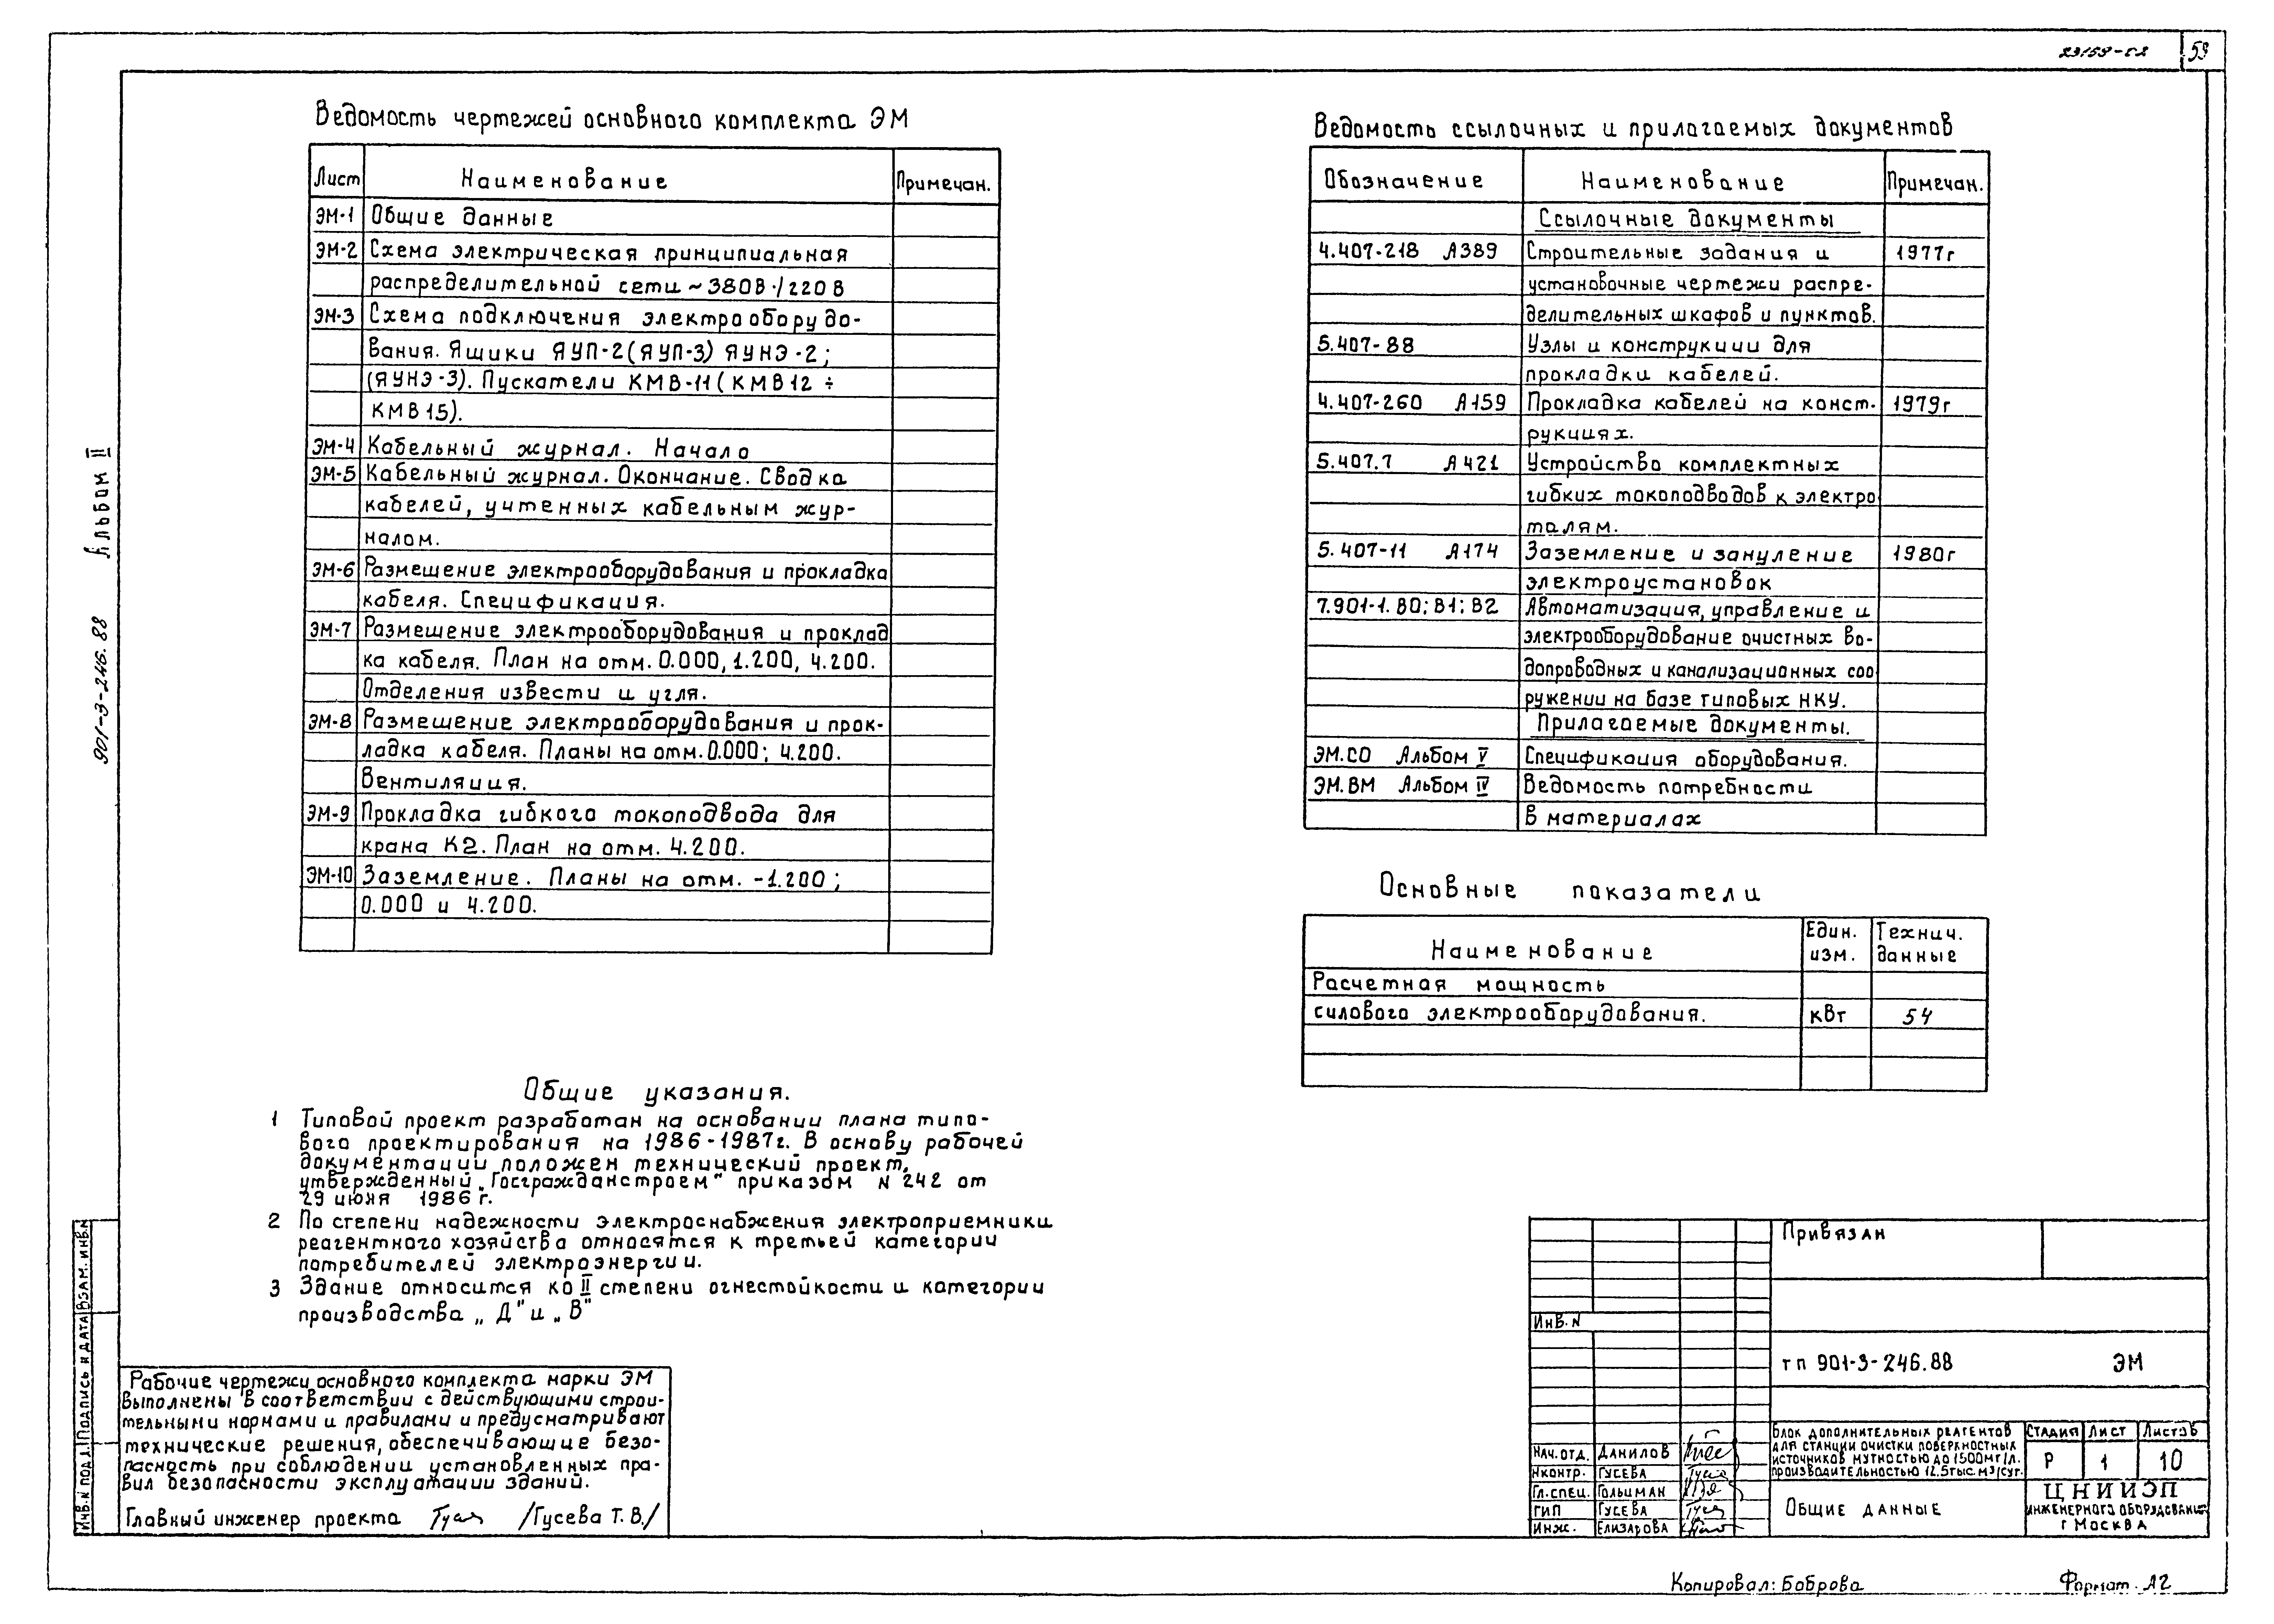 23159-02 59
Альбом II
901-3-246.88
Ведомость чертежей основного комплекта ЭМ
Лист Наименование Примечан.
ЭМ-1 Общие данные
ЭМ-2 Схема электрическая принципиальная
распределительной сети ~380В/220В
ЭМ-3 Схема подключения электрооборудо-
вания. Ящики ЯУП-2(ЯУП-3) ЯУНЭ-2;
(ЯУНЭ-3). Пускатели КМВ-11(КМВ12 ÷
КМВ15).
ЭМ-4 Кабельный журнал. Начало
ЭМ-5 Кабельный журнал. Окончание. Сводка
кабелей, учтенных кабельным жур-
налом.
ЭМ-6 Размещение электрооборудования и прокладка
кабеля. Спецификация.
ЭМ-7 Размещение электрооборудования и проклад
ка кабеля. План на отм. 0.000, 1.200, 4.200.
Отделения извести и угля.
ЭМ-8 Размещение электрооборудования и прок-
ладка кабеля. Планы на отм. 0.000; 4.200.
Вентиляция.
ЭМ-9 Прокладка гибкого токоподвода для
крана К2. План на отм. 4.200.
ЭМ-10 Заземление. Планы на отм. -1.200;
0.000 и 4.200.
Ведомость ссылочных и прилагаемых документов
Обозначение Наименование Примечан.
Ссылочные документы
4.407-218 А389 Строительные задания и 1977г
установочные чертежи распре-
делительных шкафов и пунктов.
5.407-88 Узлы и конструкции для
прокладки кабелей.
4.407-260 А159 Прокладка кабелей на конст- 1979г
рукциях.
5.407.7 А421 Устройство комплектных
гибких токоподводов к электро
талям.
5.407-11 А174 Заземление и зануление 1980г
электроустановок
7.901-1. В0; В1; В2 Автоматизация, управление и
электрооборудование очистных во-
допроводных и канализационных соо
ружении на базе типовых НКУ.
Прилагаемые документы.
ЭМ.СО Альбом V Спецификация оборудования.
ЭМ.ВМ Альбом IV Ведомость потребности
в материалах
Основные показатели
Наименование Един. изм. Технич. данные
Расчетная мощность
силового электрооборудования. кВт 54
Общие указания.
1 Типовой проект разработан на основании плана типо-
вого проектирования на 1986-1987г. В основу рабочей
документации положен технический проект,
утвержденный „Госгражданстроем" приказом N 242 от
29 июня 1986г.
2 По степени надежности электроснабжения электроприемники
реагентного хозяйства относятся к третьей категории
потребителей электроэнергии.
3 Здание относится ко II степени огнестойкости и категории
производства „Д" и „В"
Рабочие чертежи основного комплекта марки ЭМ
выполнены в соответствии с действующими строи-
тельными нормами и правилами и предусматривают
технические решения, обеспечивающие безо-
пасность при соблюдении установленных пра-
вил безопасности эксплуатации зданий.
Главный инженер проекта /Гусева Т.В./
Инв.N под л. Подпись и дата Взам. инв.N
Привязан
Инв.N
тп 901-3-246.88 ЭМ
Нач.отд. Данилов
Нконтр. Гусева
Гл.спец. Гольцман
ГИП Гусева
Инж. Елизарова
Блок дополнительных реагентов
для станции очистки поверхностных
источников мутностью до 1500мг/л.
производительностью 12.5тыс.м3/сут.
Стадия Лист Листов
Р 1 10
Общие данные
ЦНИИЭП
инженерного оборудования
г Москва
Копировал: Боброва Формат А2